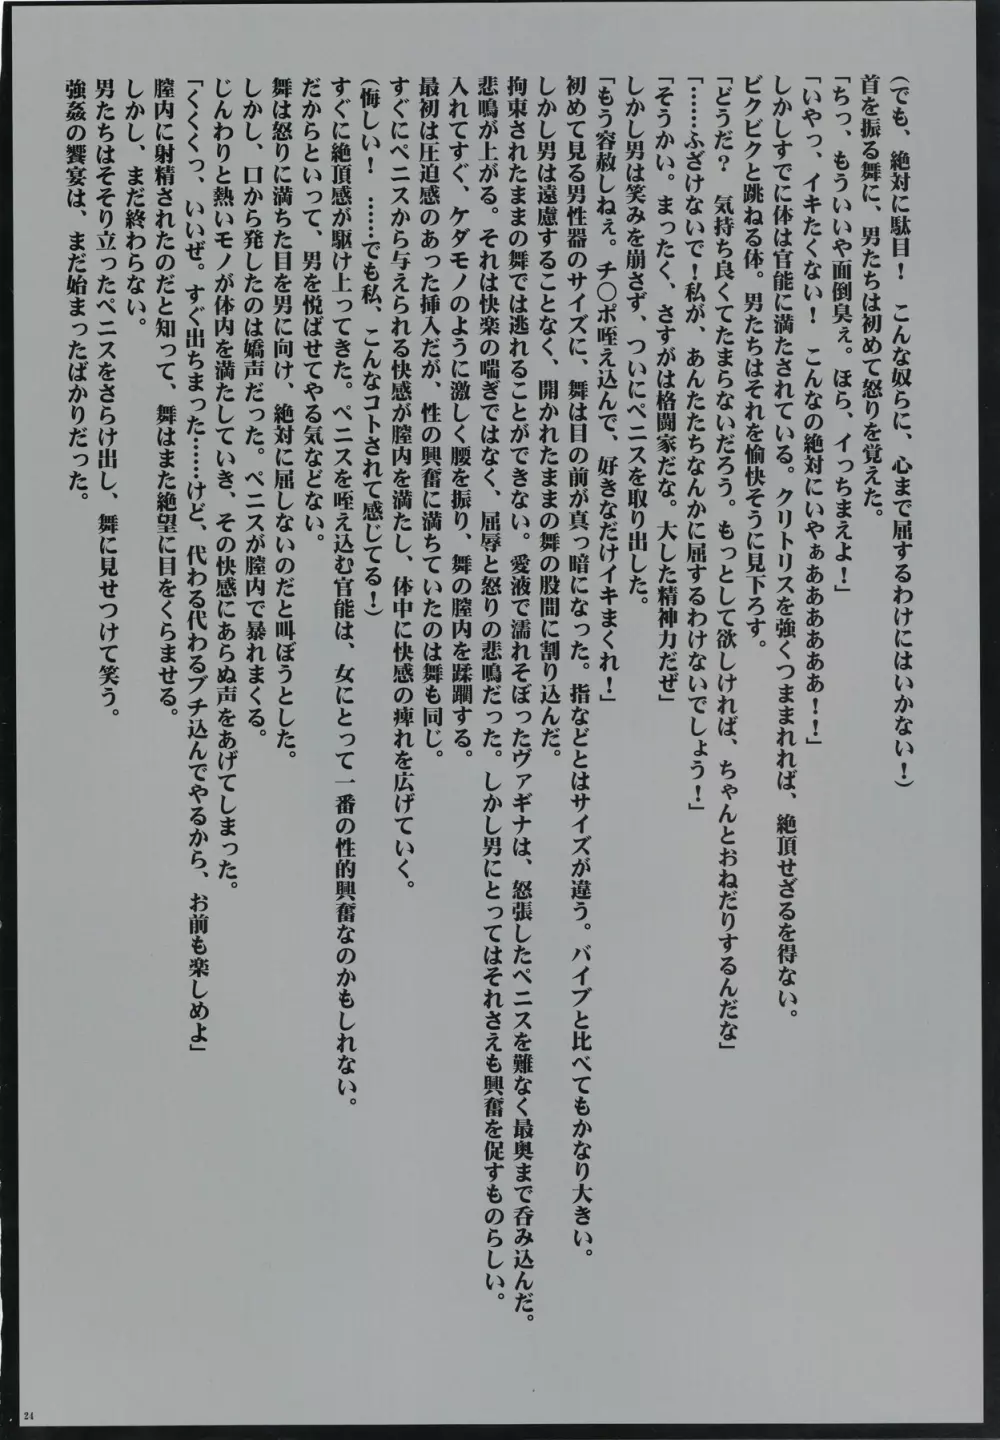 （でも、絶対に駄目！　こんな奴らに、心まで屈するわけにはいかない！）
首を振る舞に、男たちは初めて怒りを覚えた。
「ちっ、もういいや面倒臭ぇ。ほら、イっちまえよ！」
「いやっ、イキたくない！　こんなの絶対にいやぁああああああ！！」
しかしすでに体は官能に満たされている。クリトリスを強くつままれれば、絶頂せざるを得ない。
ビクビクと跳ねる体。男たちはそれを愉快そうに見下ろす。
「どうだ？　気持ち良くてたまらないだろう。もっとして欲しければ、ちゃんとおねだりするんだな」
「……ふざけないで！私が、あんたたちなんかに屈するわけないでしょう！」
「そうかい。まったく、さすがは格闘家だな。大した精神力だぜ」
しかし男は笑みを崩さず、ついにペニスを取り出した。
「もう容赦しねぇ。チ〇ポ咥え込んで、好きなだけイキまくれ！」
初めて見る男性器のサイズに、舞は目の前が真っ暗になった。指などとはサイズが違う。バイブと比べてもかなり大きい。
しかし男は遠慮することなく、開かれたままの舞の股間に割り込んだ。
拘束されたままの舞では逃れることができない。愛液で濡れそぼったヴァギナは、怒張したペニスを難なく最奥まで呑み込んだ。
悲鳴が上がる。それは快楽の喘ぎではなく、屈辱と怒りの悲鳴だった。しかし男にとってはそれさえも興奮を促すものらしい。
入れてすぐ、ケダモノのように激しく腰を振り、舞の膣内を蹂躙する。
最初は圧迫感のあった挿入だが、性の興奮に満ちていたのは舞も同じ。
すぐにペニスから与えられる快感が膣内を満たし、体中に快感の痺れを広げていく。
（悔しい！　……でも私、こんなコトされて感じてる！）
すぐに絶頂感が駆け上ってきた。ペニスを咥え込む官能は、女にとって一番の性的興奮なのかもしれない。
だからといって、男を悦ばせてやる気などない。
舞は怒りに満ちた目を男に向け、絶対に屈しないのだと叫ぼうとした。
しかし、口から発したのは嬌声だった。ペニスが膣内で暴れまくる。
じんわりと熱いモノが体内を満たしていき、その快感にあらぬ声をあげてしまった。
「くくくっ、いいぜ。すぐ出ちまった……けど、代わる代わるブチ込んでやるから、お前も楽しめよ」
膣内に射精されたのだと知って、舞はまた絶望に目をくらませる。
しかし、まだ終わらない。
男たちはそそり立ったペニスをさらけ出し、舞に見せつけて笑う。
強姦の饗宴は、まだ始まったばかりだった。
24